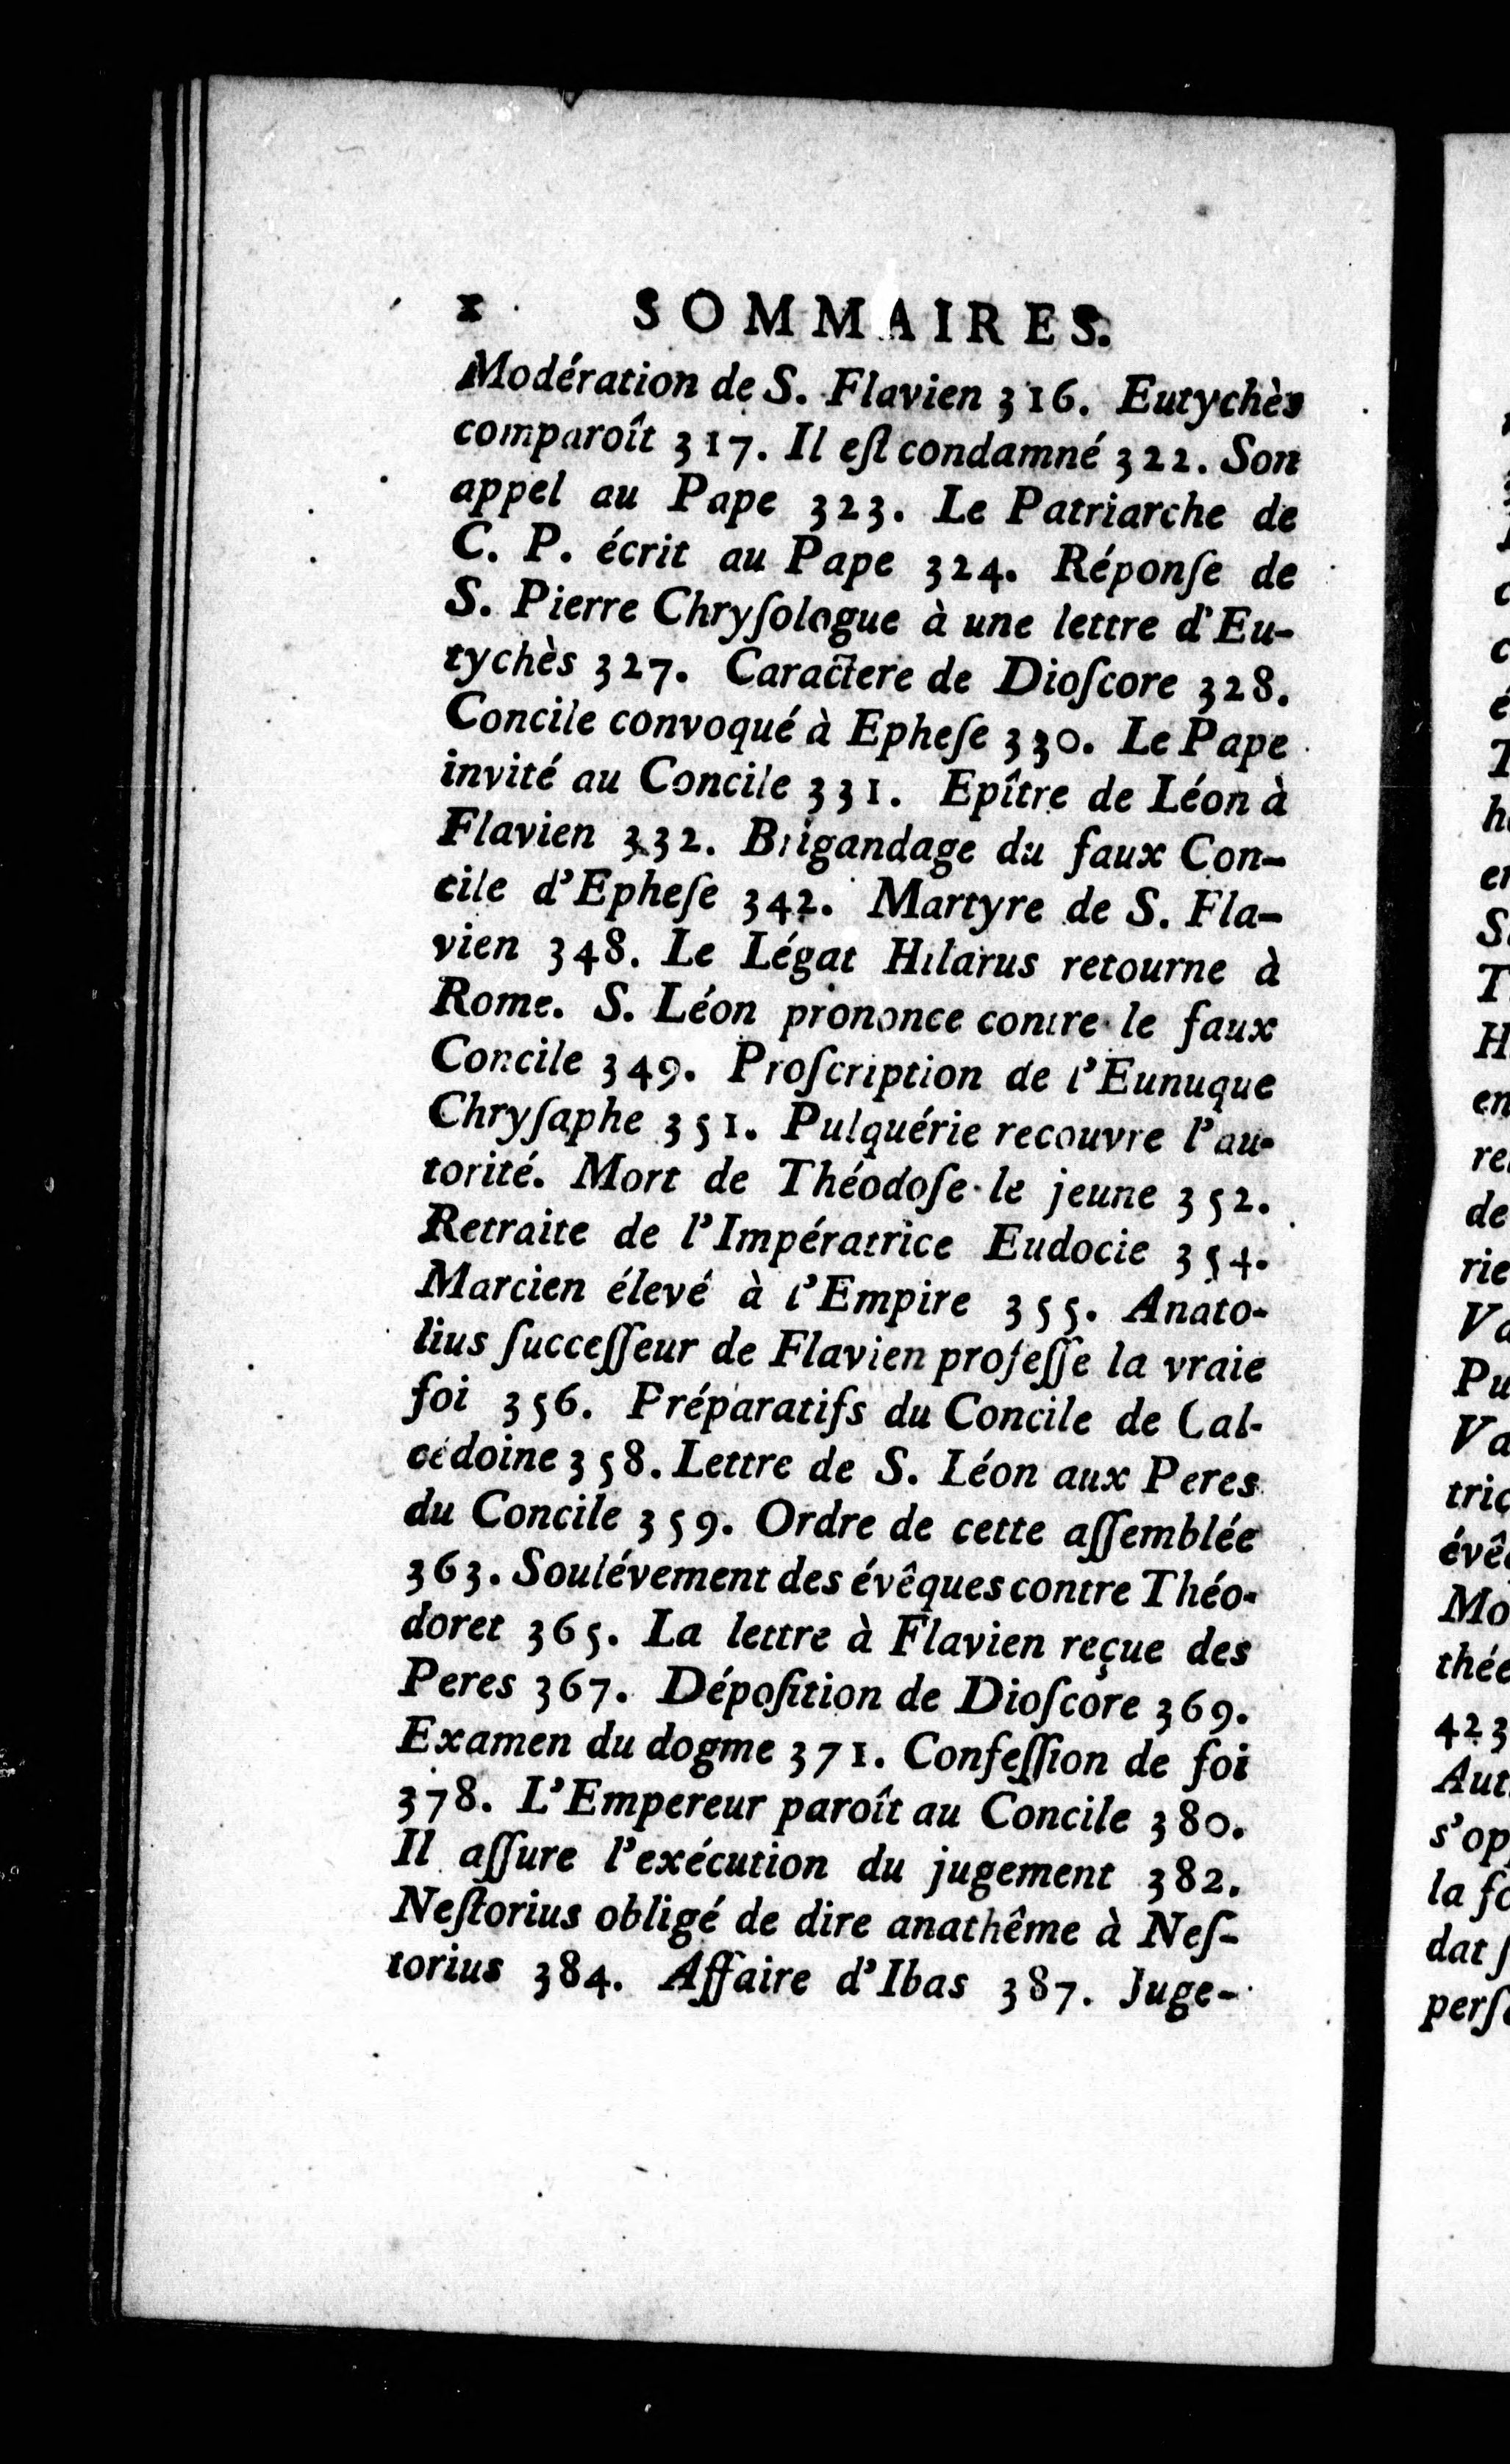 x SOMMAIRES.
Modération de S. Flavien 316. Eutychès
comparoît 317. Il eſt condamné 322. Son
appel au Pape 323. Le Patriarche de
C. P. écrit au Pape 324. Réponſe de
S. Pierre Chryſologue à une lettre d'Eu-
tychès 327. Caractere de Dioſcore 328.
Concile convoqué à Epheſe 330. Le Pape
invité au Concile 331. Epître de Léon à
Flavien 332. Brigandage du faux Con-
cile d'Epheſe 342. Martyre de S. Fla-
vien 348. Le Légat Hilarus retourne à
Rome. S. Léon prononce contre le faux
Concile 349. Proſcription de l'Eunuque
Chryſaphe 351. Pulquérie recouvre l'au-
torité. Mort de Théodoſe le jeune 352.
Retraite de l'Impératrice Eudocie 354.
Marcien élevé à l'Empire 355. Anato-
lius ſucceſſeur de Flavien profeſſe la vraie
foi 356. Préparatifs du Concile de Cal-
cédoine 358. Lettre de S. Léon aux Peres
du Concile 359. Ordre de cette aſſemblée
363. Soulévement des évêques contre Théo-
doret 365. La lettre à Flavien reçue des
Peres 367. Dépoſition de Dioſcore 369.
Examen du dogme 371. Confeſſion de foi
378. L'Empereur paroît au Concile 380.
Il aſſure l'exécution du jugement 382.
Neſtorius obligé de dire anathême à Neſ-
torius 384. Affaire d'Ibas 387. Juge-
c
c
é
T
h
er
S
T
H
en
re
de
rie
Va
Pu
Va
tric
évê
Mo
thée
423
Aut
s'op
la fo
dat ſ
perſ